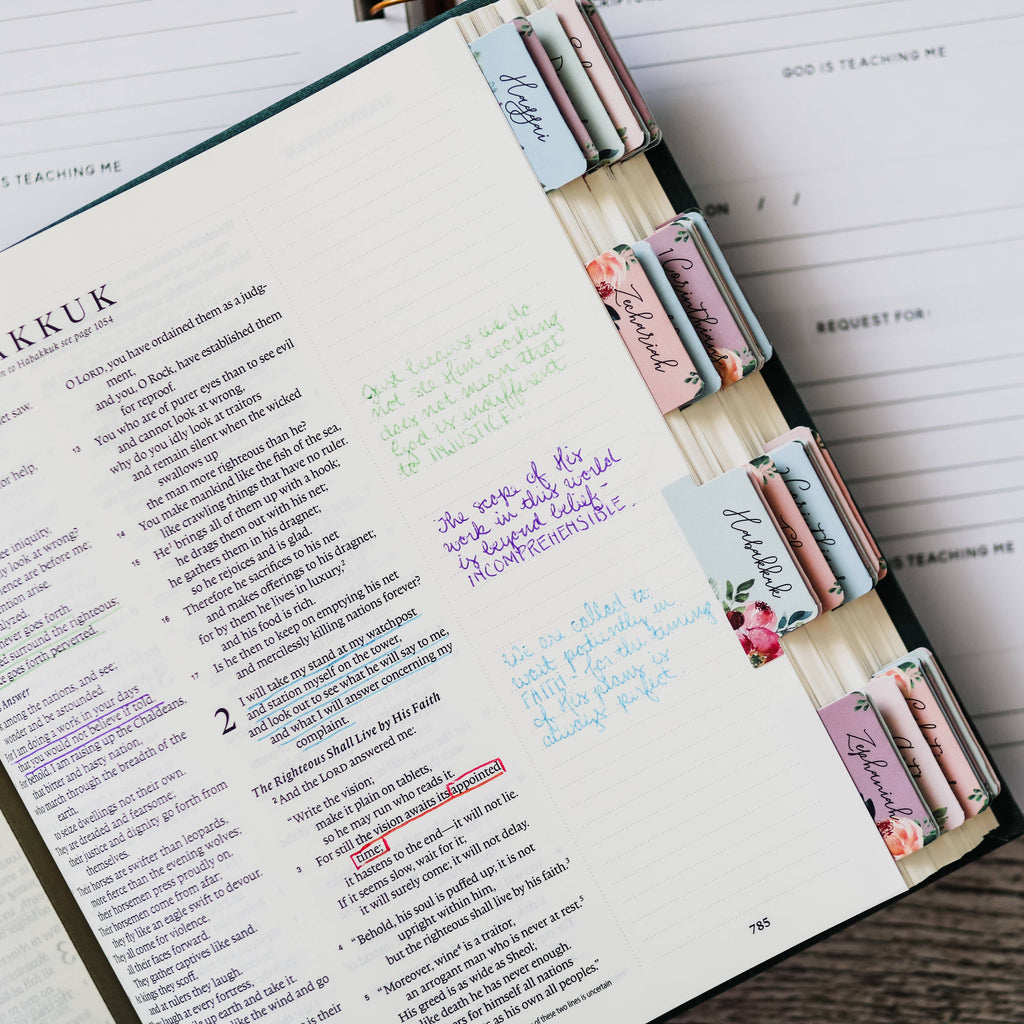 SCRIPTURE
GOD IS TEACHING ME
S TEACHING ME
ON / /
REQUEST FOR:
S TEACHING ME
Haggai
Zechariah
Corinthians
Habakkuk
Corinthians
Zephaniah
AKKUK
n to Habakkuk see page 1054
er saw.
for help,
ee iniquity,
ly look at wrong?
ence are before me;
ention arise.
alyzed,
never goes forth.
ed surround the righteous;
ce goes forth perverted.
Answer
k among the nations, and see;
wonder and be astounded.
For I am doing a work in your days
that you would not believe if told.
For behold, I am raising up the Chaldeans,
that bitter and hasty nation,
who march through the breadth of the
earth,
to seize dwellings not their own.
They are dreaded and fearsome;
their justice and dignity go forth from
themselves.
Their horses are swifter than leopards,
more fierce than the evening wolves;
their horsemen press proudly on.
Their horsemen come from afar;
they fly like an eagle swift to devour.
They all come for violence,
all their faces forward.
They gather captives like sand.
At kings they scoff,
and at rulers they laugh.
They laugh at every fortress,
le up earth and take it.
like the wind and go
is their
O LORD, you have ordained them as a judg-
ment,
and you, O Rock, have established them
for reproof.
13 You who are of purer eyes than to see evil
and cannot look at wrong,
why do you idly look at traitors
and remain silent when the wicked
swallows up
the man more righteous than he?
14 You make mankind like the fish of the sea,
like crawling things that have no ruler.
15 He¹ brings all of them up with a hook;
he drags them out with his net;
he gathers them in his dragnet;
so he rejoices and is glad.
16 Therefore he sacrifices to his net
and makes offerings to his dragnet;
for by them he lives in luxury,²
and his food is rich.
17 Is he then to keep on emptying his net
and mercilessly killing nations forever?
2 I will take my stand at my watchpost
and station myself on the tower,
and look out to see what he will say to me,
and what I will answer concerning my
complaint.
The Righteous Shall Live by His Faith
² And the LORD answered me:
"Write the vision;
make it plain on tablets,
so he may run who reads it.
3 For still the vision awaits its appointed
time;
it hastens to the end—it will not lie.
If it seems slow, wait for it;
it will surely come; it will not delay.
4 "Behold, his soul is puffed up; it is not
upright within him,
but the righteous shall live by his faith.³
5 "Moreover, wine⁴ is a traitor,
an arrogant man who is never at rest.⁵
His greed is as wide as Sheol;
like death he has never enough.
ers for himself all nations
as his own all peoples."
of these two lines is uncertain
Just because we do
not see Him working
does not mean that
God is indifferent
to INJUSTICE.
The scope of His
work in this world
is beyond belief-
INCOMPREHENSIBLE.
We are called to
wait patiently in
FAITH for the timing
of His plans is
always perfect.
785